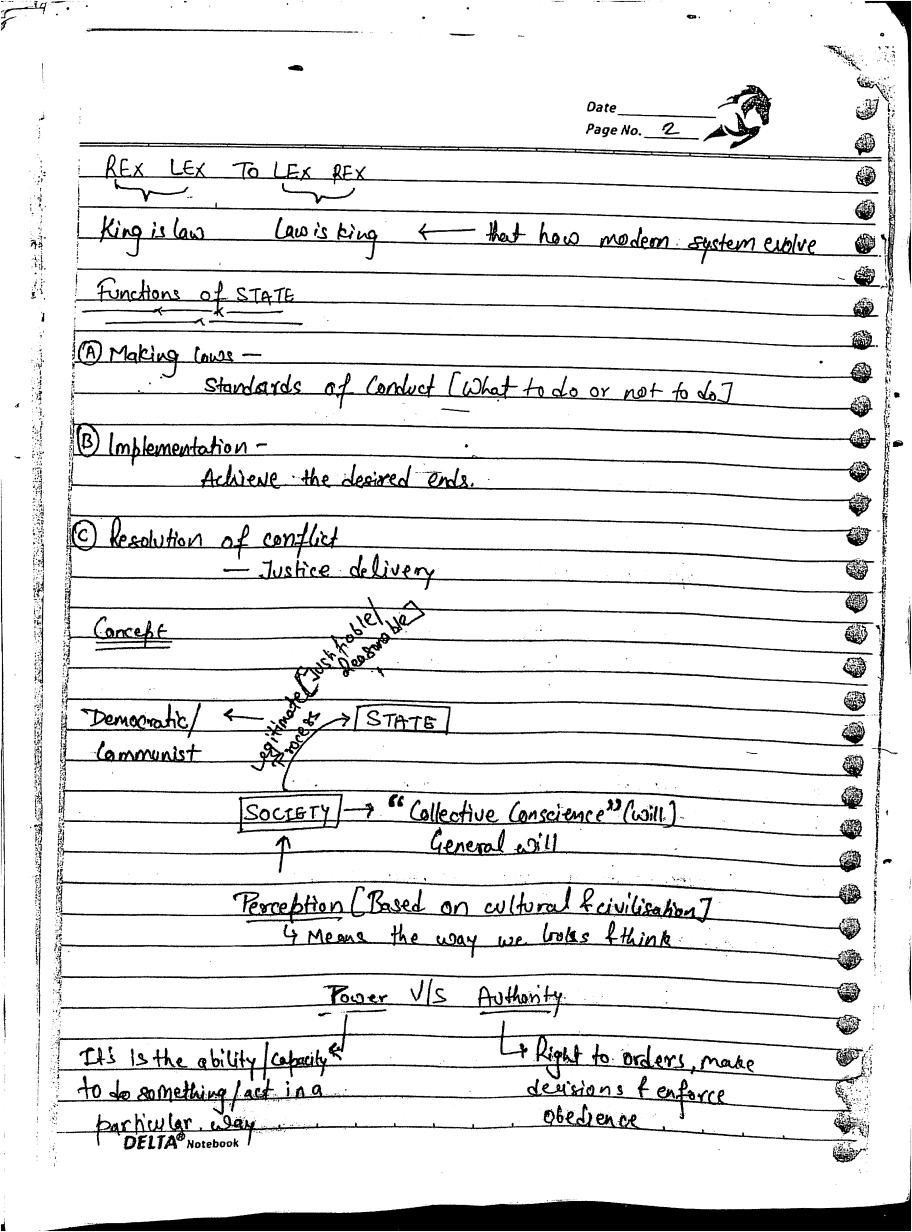 Date
Page No. 2
REX LEX TO LEX REX
King is law Law is king ← that how modern system evolve
Functions of STATE
(A) Making laws –
Standards of Conduct [What to do or not to do]
(B) Implementation –
Achieve the desired ends.
(C) Resolution of conflict
– Justice delivery
Concept
Legitimate [Justifiable/
Reasonable]
Process
Democratic/ ← → STATE
Communist
SOCIETY → "Collective Conscience" (will)
General will
↑
Perception [Based on cultural & civilisation]
↳ Means the way we looks & think
Power V/S Authority
It's is the ability/capacity
to do something/act in a
particular way
↳ Right to orders, make
decisions & enforce
obedience
DELTA® Notebook